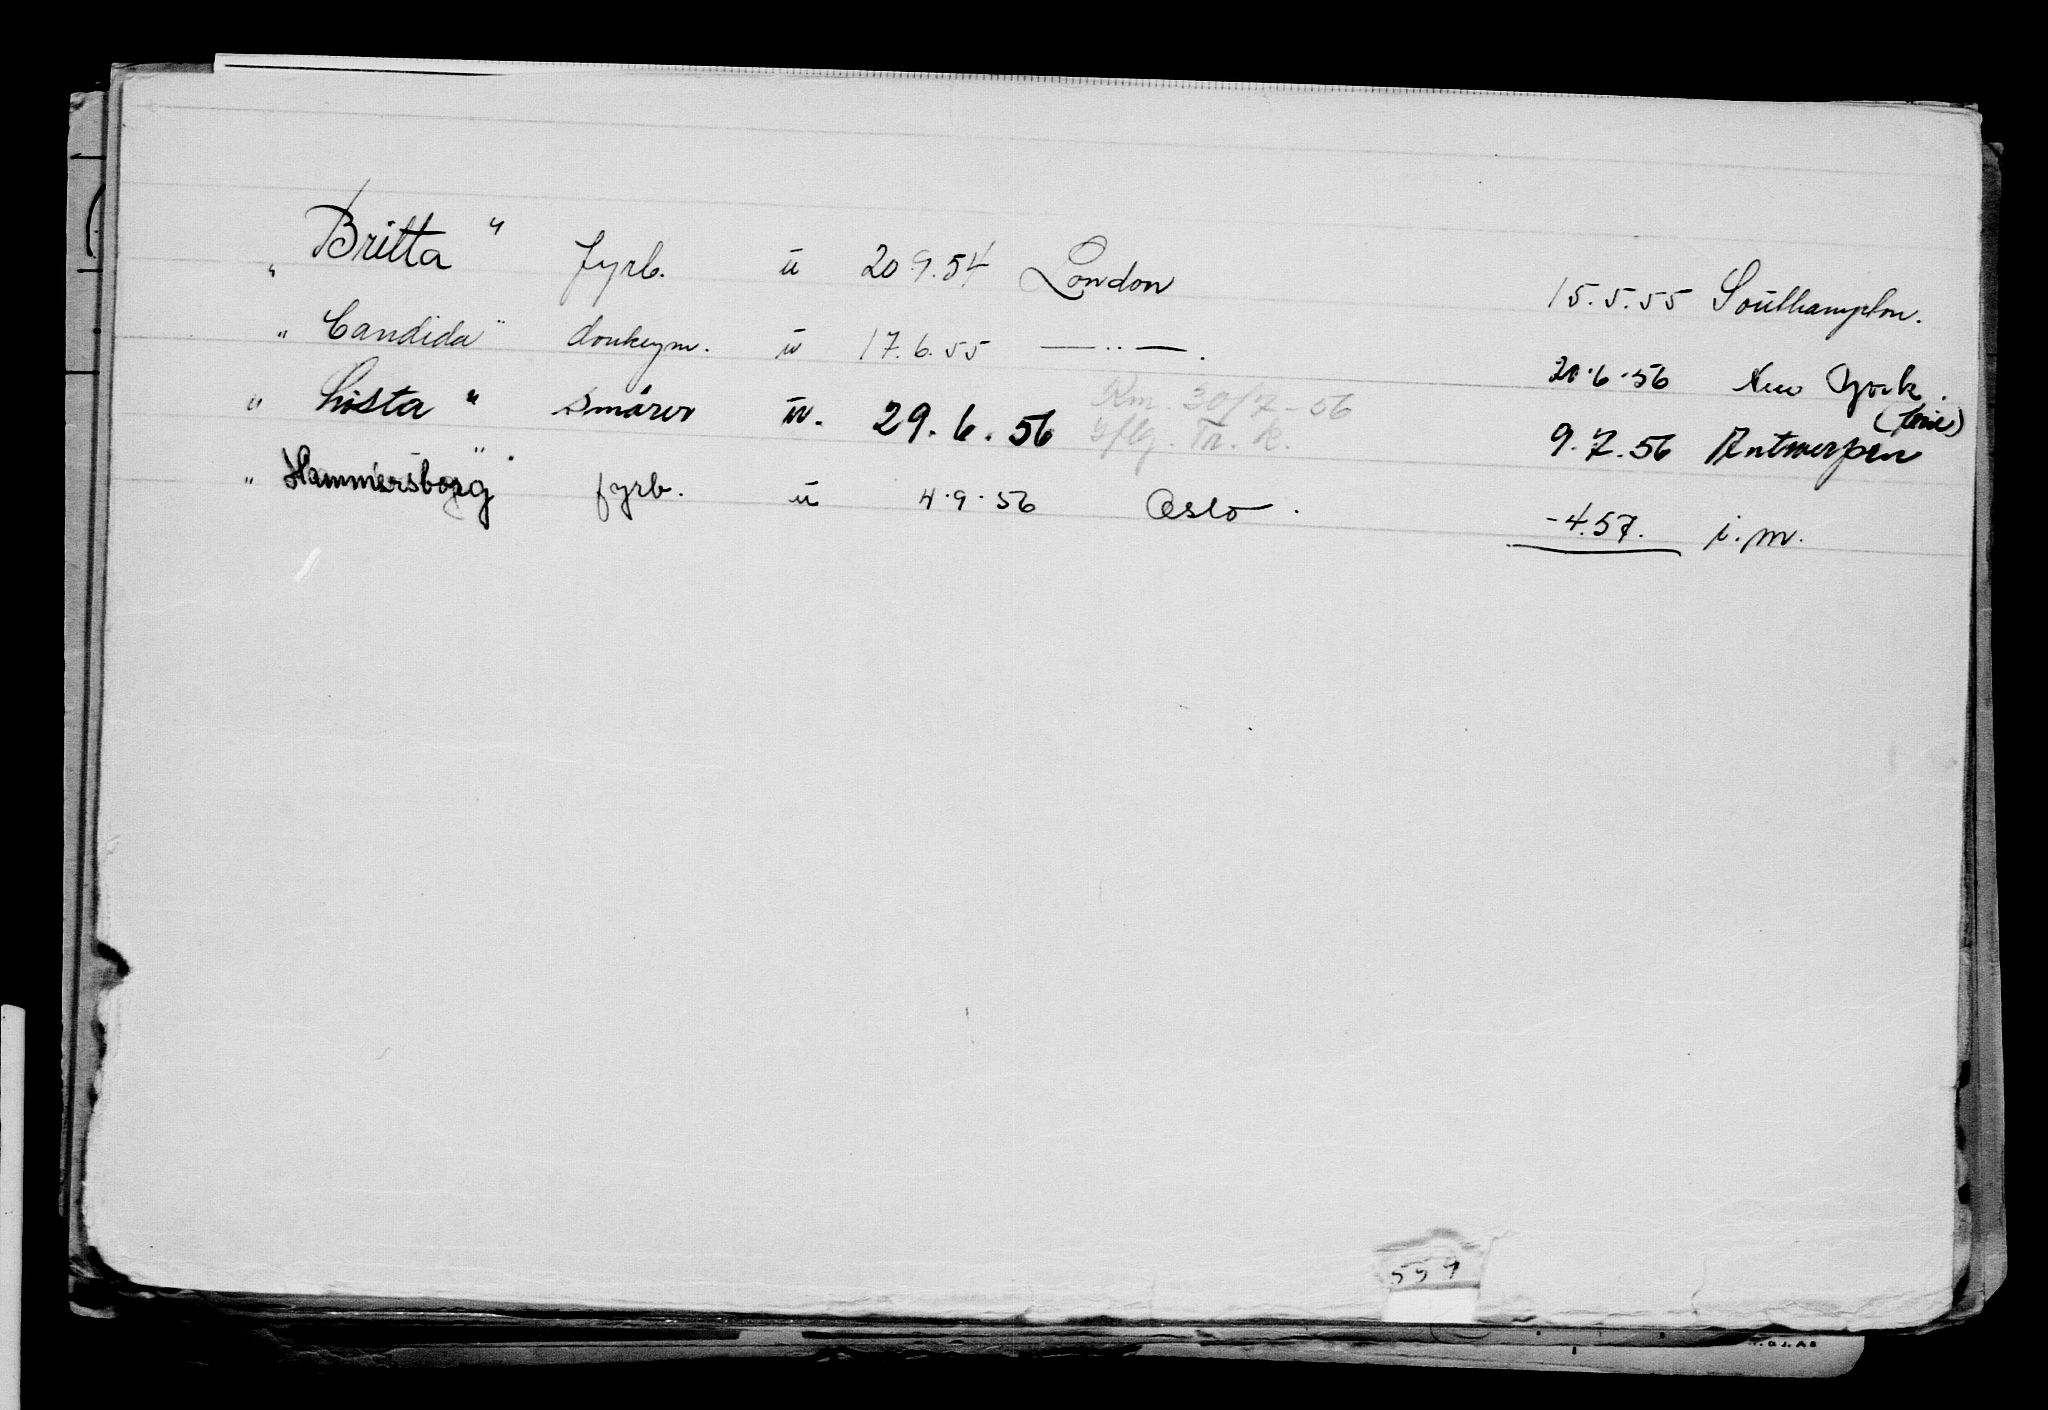 „ Britta " fyrb. u 20.9.54 London 15.5.55 Southampton.
„ Candida " donkeym. u 17.6.55 — " — . 20.6.56 New York.
„ Lista " smører u. 29.6.56 Rm. 30/7-56 9.7.56 Antwerpen
Tr. k.
„ Hammersborg " fyrb. u 4.9.56 Oslo. -4.57. i.m.
559